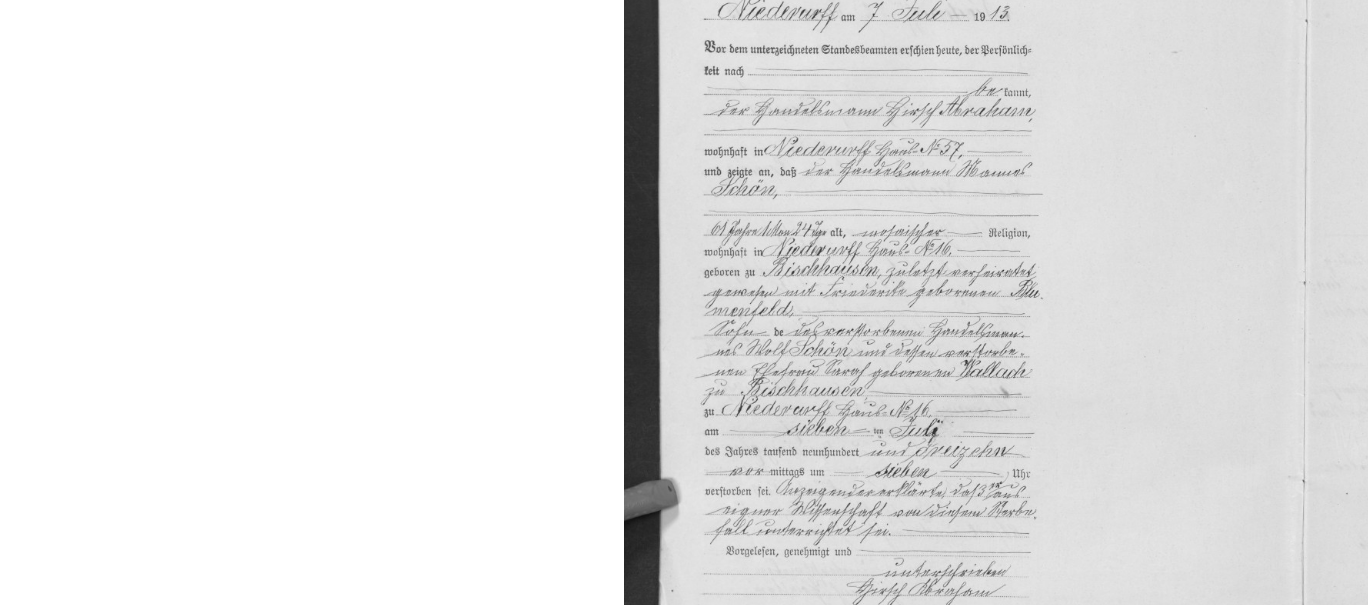 Niederurff am 7 Juli 1913.
Vor dem unterzeichneten Standesbeamten erschien heute, der Persönlich-
keit nach
be kannt,
der Handelsmann Hirsch Abraham,
wohnhaft in Niederurff Haus-No 57,
und zeigte an, daß der Handelsmann Mannes
Schön,
61 Jahre 1 Mon 24 Tage alt, mosaischer Religion,
wohnhaft in Niederurff Haus-No 16,
geboren zu Bischhausen, zuletzt verheiratet
gewesen mit Friederike geborenen Blu-
menfeld,
Sohn de des verstorbenen Handelsman-
nes Wolf Schön und dessen verstorbe-
nen Ehefrau Sarah geborenen Wallach
zu Bischhausen,
zu Niederurff Haus-No 16,
am sieben ten July
des Jahres tausend neunhundert und dreizehn
vor mittags um sieben Uhr
verstorben sei. Anzeigender erklärte, daß er aus
eigner Wissenschaft von diesem Sterbe-
fall unterrichtet sei.
Vorgelesen, genehmigt und
unterschrieben
Hirsch Abraham